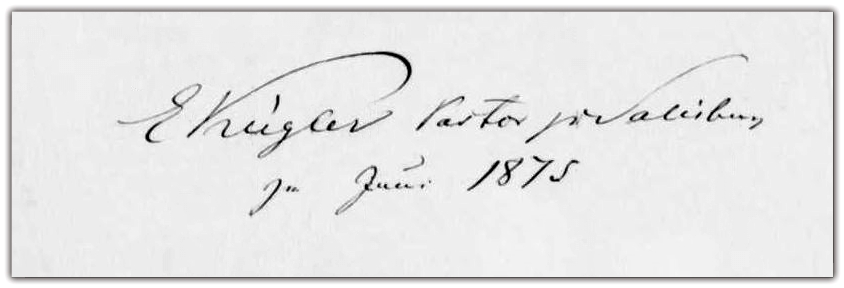 E Krügler Pastor in Salisbury
im Juni 1875